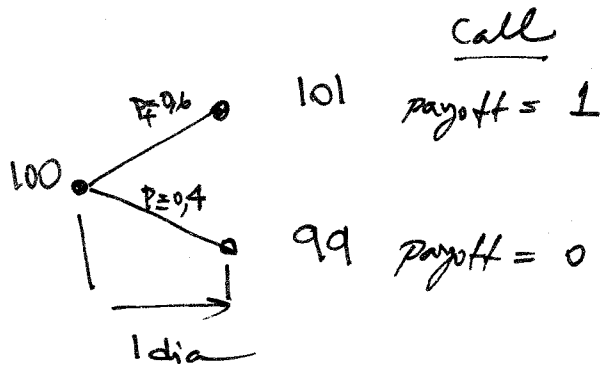 Call
101 payoff = 1
P+=0,6
100
P-=0,4
99 payoff = 0
1 dia